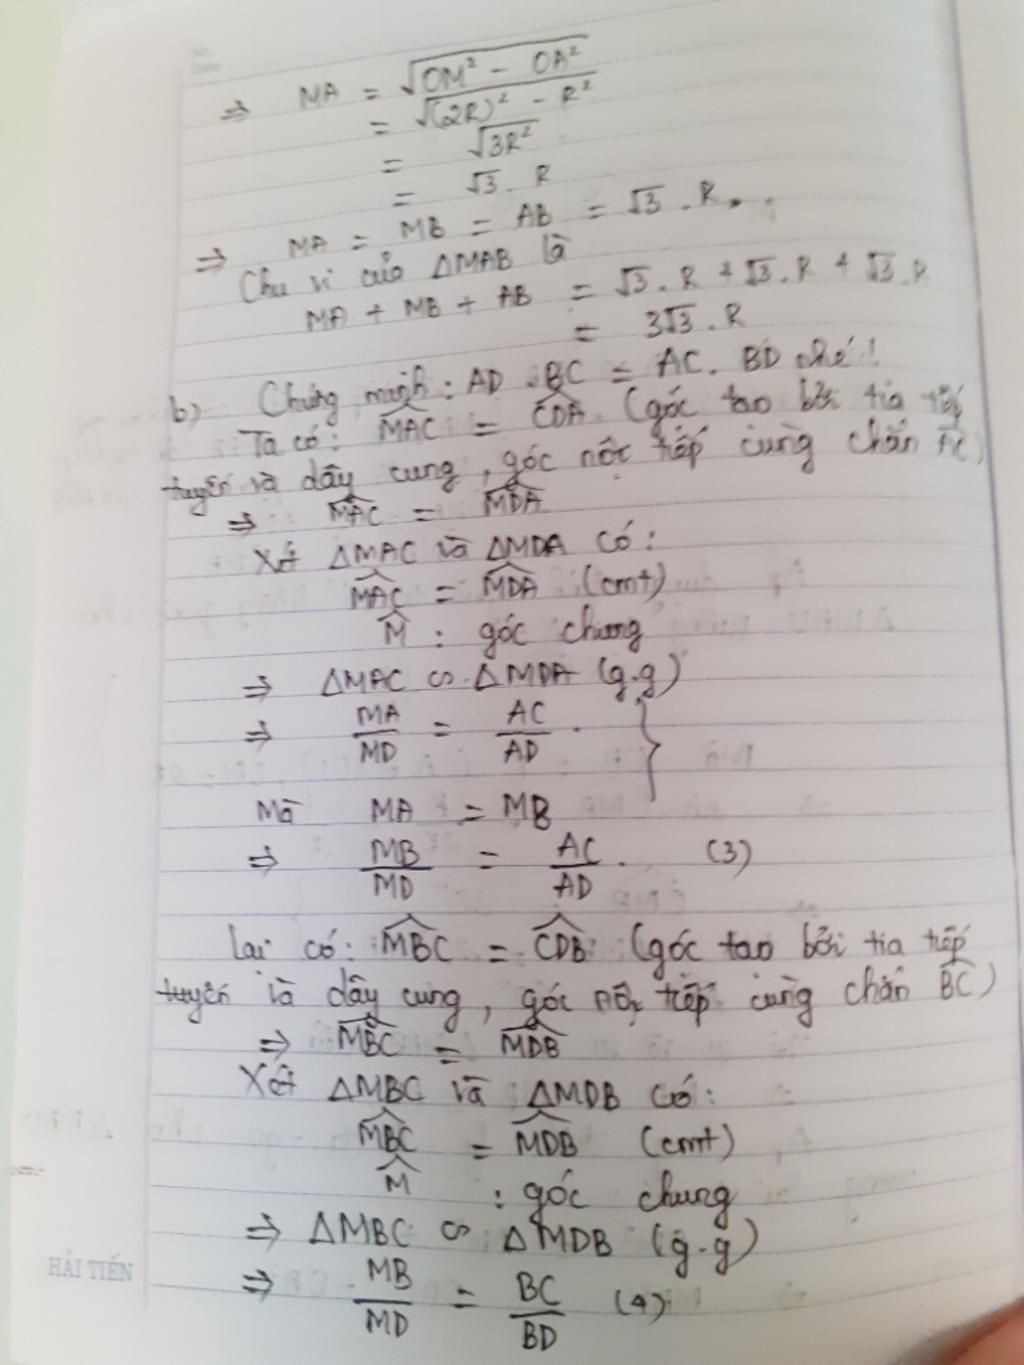 ⇒ MA = √(OM² - OA²)
= √((2R)² - R²)
= √(3R²)
= √3 . R
⇒ MA = MB = AB = √3 . R.
Chu vi của ΔMAB là
MA + MB + AB = √3 . R + √3 . R + √3 . R
= 3√3 . R
b) Chứng minh: AD . BC = AC . BD chứ!
Ta có: MAC = CDA (góc tạo bởi tia tiếp
tuyến và dây cung, góc nội tiếp cùng chắn AC)
⇒ MAC = MDA
Xét ΔMAC và ΔMDA có:
MAC = MDA (cmt)
M : góc chung
⇒ ΔMAC ∽ ΔMDA (g.g)
⇒ MA/MD = AC/AD .
Mà MA = MB
⇒ MB/MD = AC/AD . (3)
Lại có: MBC = CDB (góc tạo bởi tia tiếp
tuyến và dây cung, góc nội tiếp cùng chắn BC)
⇒ MBC = MDB
Xét ΔMBC và ΔMDB có:
MBC = MDB (cmt)
M : góc chung
⇒ ΔMBC ∽ ΔMDB (g.g)
HẢI TIẾN
⇒ MB/MD = BC/BD (4)